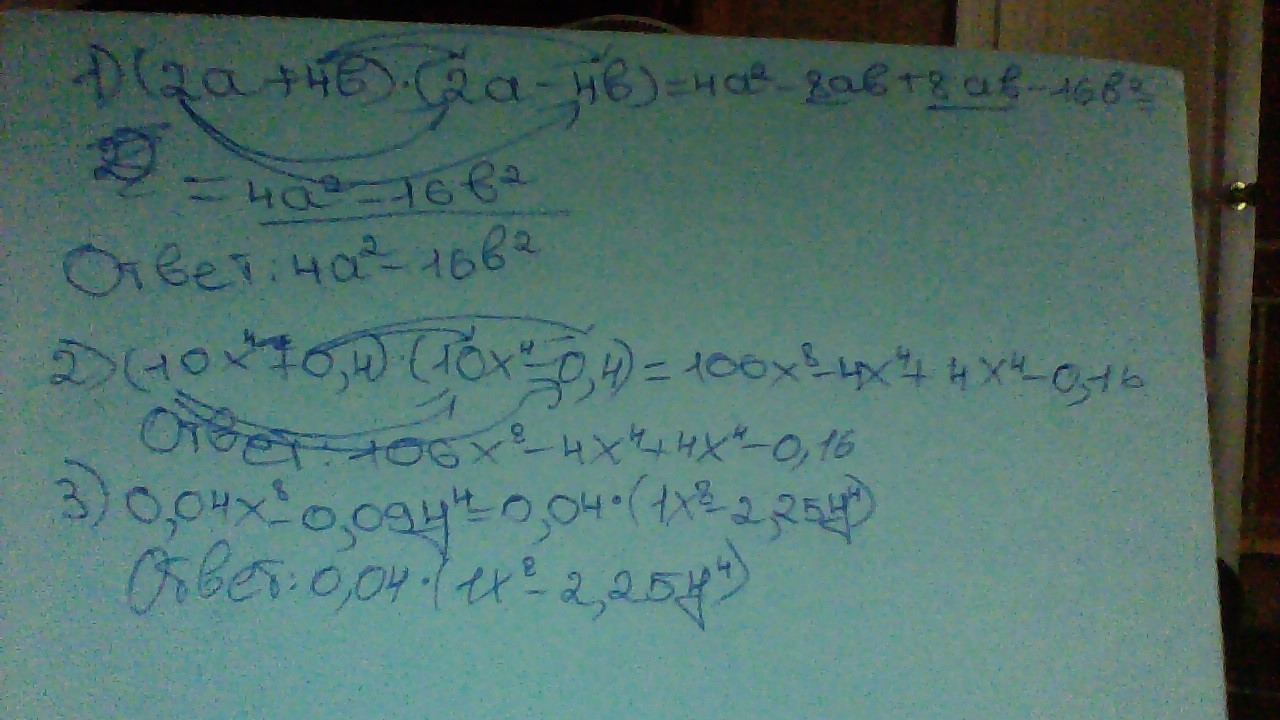 1) (2а+4в)·(2а-4в)=4а²-8ав+8ав-16в²
=4а²-16в²
Ответ: 4а²-16в²
2) (10x⁴+0,4)·(10x⁴-0,4)=100x⁸-4x⁴+4x⁴-0,16
Ответ: 100x⁸-4x⁴+4x⁴-0,16
3) 0,04x⁸-0,09y⁴=0,04·(1x⁸-2,25y⁴)
Ответ: 0,04·(1x⁸-2,25y⁴)